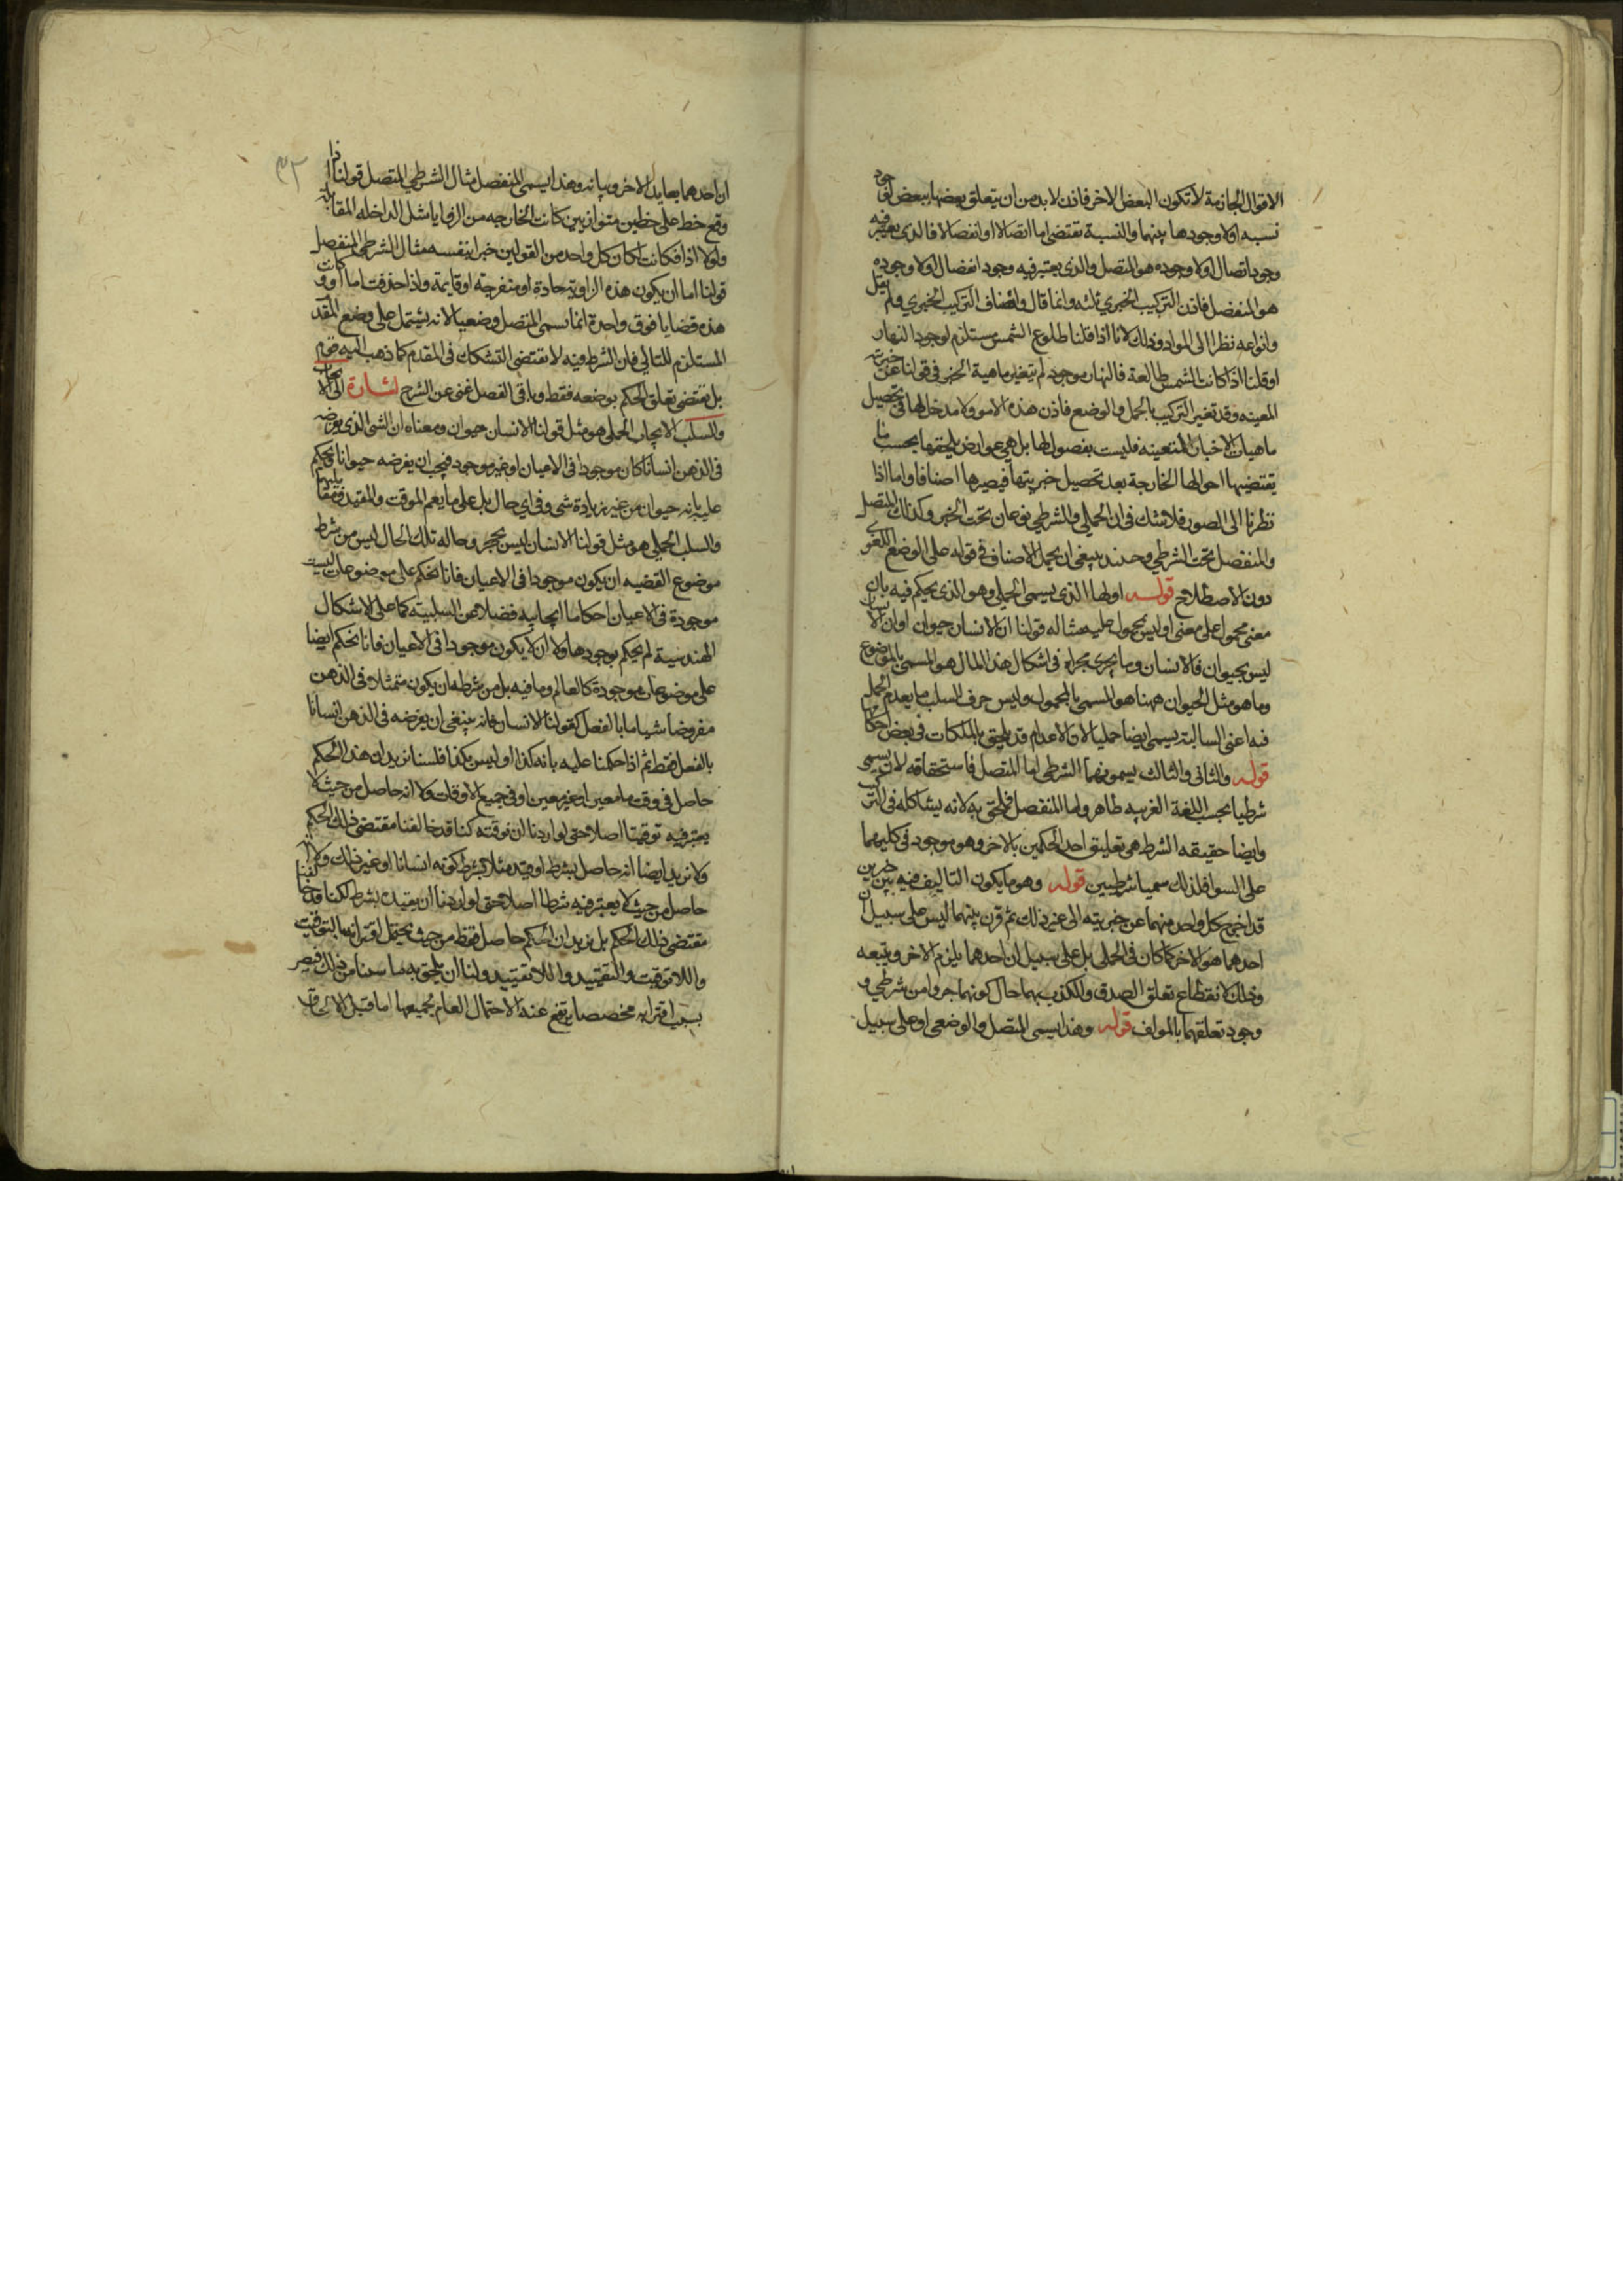 الاقوال الجازمة لا تكون البعض الاخر فاذن لا بد من ان يتعلق بعضها ببعض لوجود
نسبه او لا وجودها بينهما والنسبة تقتضى اما اتصالا او انفصالا فالذى يعتبر فيه
وجود اتصال او لا وجوده هو المتصل والذى يعتبر فيه وجود انفصال او لا وجوده
هو المنفصل فاذن التركيب الخبرى ثلثه وانما قال واصناف التركيب الخبرى ولم يقل
وانواعه نظرا الى المواد وذلك لانا اذا قلنا طلوع الشمس مستلزم لوجود النهار
او قلنا اذا كانت الشمس طالعة فالنهار موجود لم يتغير ماهية الخبر فى قولنا عن خبريته
المعينه وقد تغير التركيب بالحمل والوضع فاذن هذه الامور لا مدخل لها فى تحصيل
ماهيات الاخبار المتعينه فليست بفصول لها بل هى عوارض يلحقها بحسب ما
يقتضيها احوالها الخارجة بعد تحصيل خبريتها فيصيرها اصنافا واما اذا
نظرنا الى الصور فلا شك فى ان الحملى والشرطى نوعان تحت الخبر وكذلك المتصل
والمنفصل تحت الشرطى وحينئذ ينبغى ان يحمل الاصناف فى قوله على الوضع اللغوى
دون الاصطلاح قوله اولها الذى يسمى الحملى وهو الذى يحكم فيه بان
معنى محمول على معنى او ليس بمحمول عليه مثاله قولنا ان الانسان حيوان او ان الانسان
ليس بحيوان فالانسان وما يجرى مجراه فى اشكال هذا المثال هو المسمى بالموضوع
وما هو مثل الحيوان ههنا هو المسمى بالمحمول وليس حرف السلب ما يعدم الحمل
فيه اعنى السالبة يسمى ايضا حمليا لان الاعدام قد يلحق بالملكات فى بعض احكامها
قوله والثانى والثالث يسمونهما الشرطى اما المتصل فاستحقاقه لان يسمى
شرطيا بحسب اللغة العربيه ظاهر واما المنفصل فملحق به لانه يشاكله فى التركيب
وايضا حقيقه الشرط هى تعليق احد الحكمين بالاخر وهو موجود فى كليهما
على السوا فلذلك سميا شرطيين قوله وهو ما يكون التاليف فيه بين خبرين
قد اخرج كل واحد منهما عن خبريته الى غير ذلك ثم قرن بينهما ليس على سبيل ان
احدهما هو الاخر كما كان فى الحملى بل على سبيل ان احدهما يلزم الاخر ويتبعه
وذلك لانقطاع تعلق الصدق والكذب بهما حال كونهما جزوا من شرطى و
وجود تعلقهما بالمولف قوله وهذا يسمى المتصل والوضعى او على سبيل
٣٢
ان احدهما يعاند الاخر ويباينه وهذا يسمى المنفصل مثال الشرطى المتصل قولنا اذا
وقع خط على خطين متوازيين كانت الخارجه من الزوايا مثل الداخله المقابلة
ولولا اذا وكانت لكان كل واحد من القولين خبرا بنفسه مثال الشرطى المنفصل
قولنا اما ان يكون هذه الزاوية حادة او منفرجة او قايمة واذا حذفت اما واو كانت
هذه قضايا فوق واحدة انما سمى المتصل وضعيا لانه يشتمل على وضع المقدم
المستلزم للتالى فان الشرط فيه لا يقتضى التشكك فى المقدم كما ذهب اليه قوم
بل يقتضى تعلق الحكم بوضعه فقط وباقى الفصل غنى عن الشرح اشارة الى الايجاب
والسلب الايجاب الحملى هو مثل قولنا الانسان حيوان ومعناه ان الشى الذى يفرضه
فى الذهن انسانا كان موجودا فى الاعيان او غير موجود فيجب ان يفرضه حيوانا ويحكم
عليه بانه حيوان من غير زيادة شى وفى اى حال بل على ما يعم الموقت والمقيد ومقابليهما
والسلب الحملى هو مثل قولنا الانسان ليس بحجر وحاله تلك الحال ليس من شرط
موضوع القضيه ان يكون موجودا فى الاعيان فانا نحكم على موضوعات ليست
موجودة فى الاعيان احكاما ايجابيه فضلا عن السلبيته كما على الاشكال
الهندسية لم يحكم بوجودها ولا ان لا يكون موجودا فى الاعيان فانا نحكم ايضا
على موضوعات موجودة كالعالم وما فيه بل من شرطه ان يكون متمثلا فى الذهن
مفروضا شيا ما بالفعل كقولنا الانسان فانه ينبغى ان يفرضه فى الذهن انسانا
بالفعل فقط ثم اذا حكمنا عليه بانه كذا او ليس بكذا فلسنا نريد ان هذا الحكم
حاصل فى وقت ما معين او غير معين او فى جميع الاوقات ولا انه حاصل من حيث لا
يعتبر فيه توقيتا اصلا حتى لو اردنا ان نوقته كنا قد خالفنا مقتضى ذلك الحكم
ولا نريد ايضا انه حاصل بشرط او قيد مثلا بشرط كونه انسانا او غير ذلك ولا انه
حاصل من حيث لا يعتبر فيه شرطا اصلا حتى لو اردنا ان نقيده بشرط لكنا قد خالفنا
مقتضى ذلك الحكم بل نريد ان الحكم حاصل فقط من حيث يحتمل اقترانه بالتوقيت
واللاتوقيت والتقييد واللاتقييد ولنا ان نلحق به ما شئنا من ذلك فيصير
بسبب اقترانه مخصصا يرتفع عنه الاحتمال العام لجميعها اما قبل الالحاق